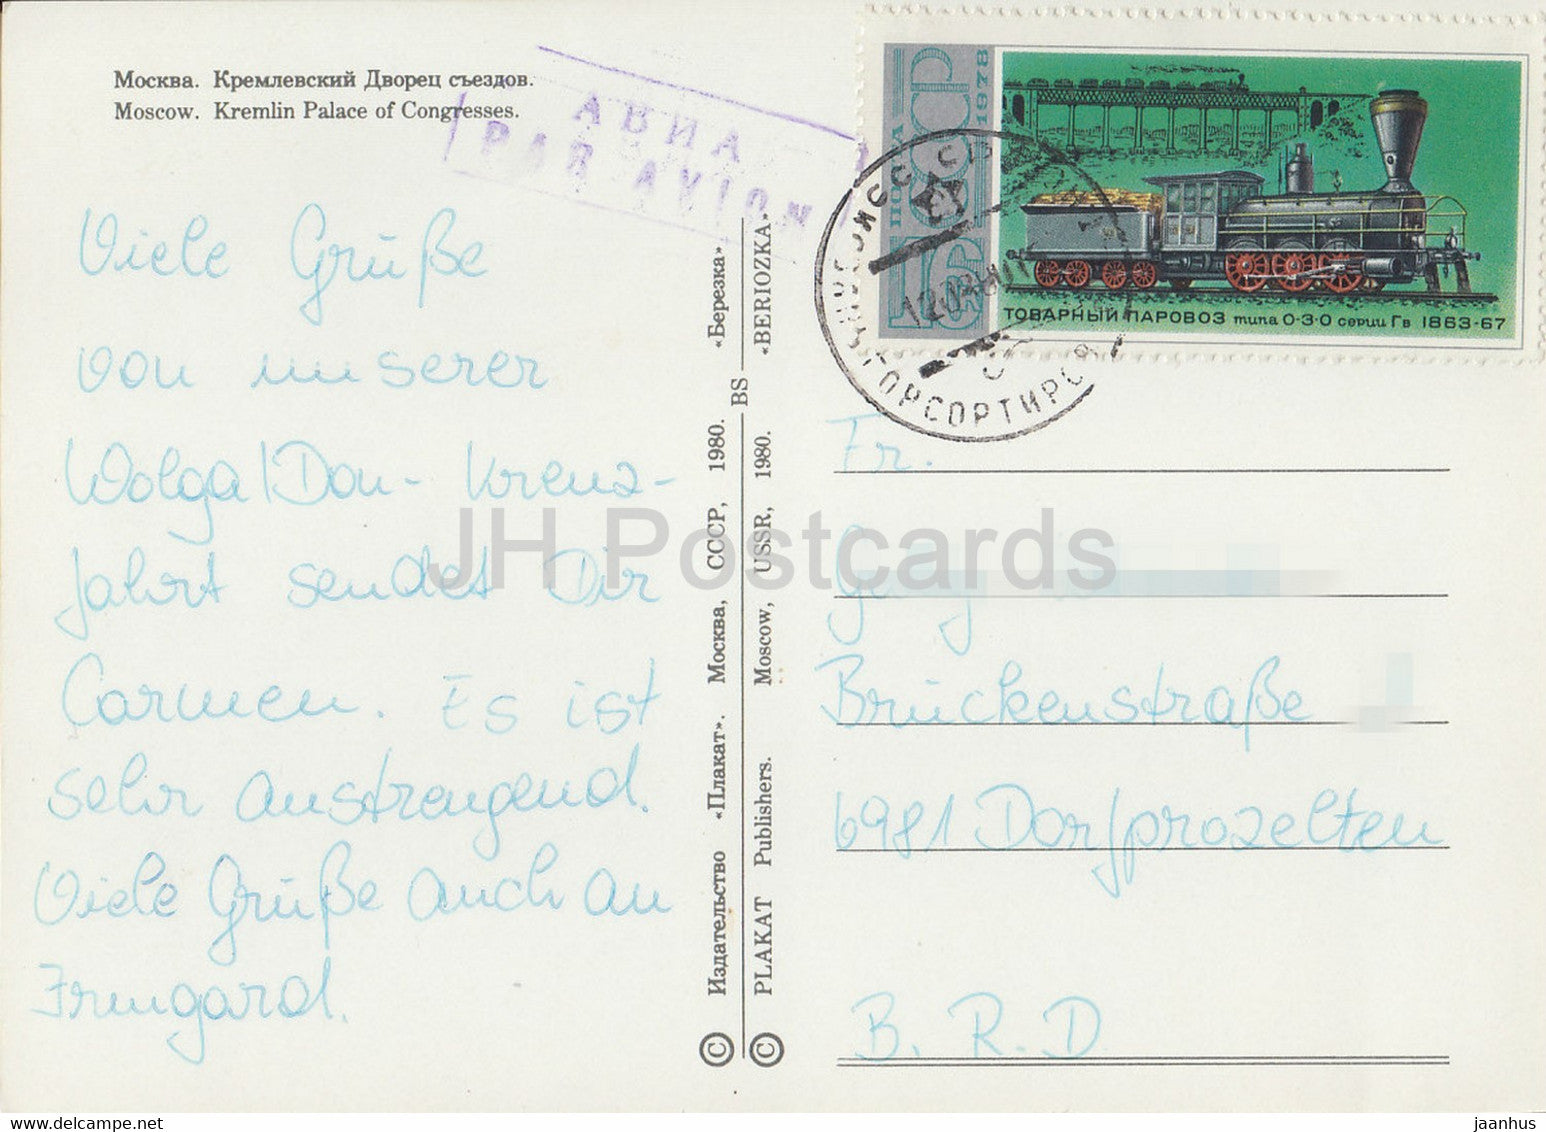 Москва. Кремлевский Дворец съездов.
Moscow. Kremlin Palace of Congresses.
АВИА
PAR AVION
ПОЧТА СССР 1978
16
ТОВАРНЫЙ ПАРОВОЗ типа 0-3-0 серии Гв 1863-67
Viele Grüße
von unserer
Wolga/Don-Kreuz-
fahrt sendet Dir
Carmen. Es ist
sehr anstrengend.
Viele Grüße auch an
Irmgard.
© Издательство «Плакат». Москва, СССР, 1980. «Березка»
BS
© PLAKAT Publishers. Moscow, USSR, 1980. «BERIOZKA»
Fr.
Brückenstraße
6981 Dorfprozelten
B. R. D
JH Postcards
jaanhus